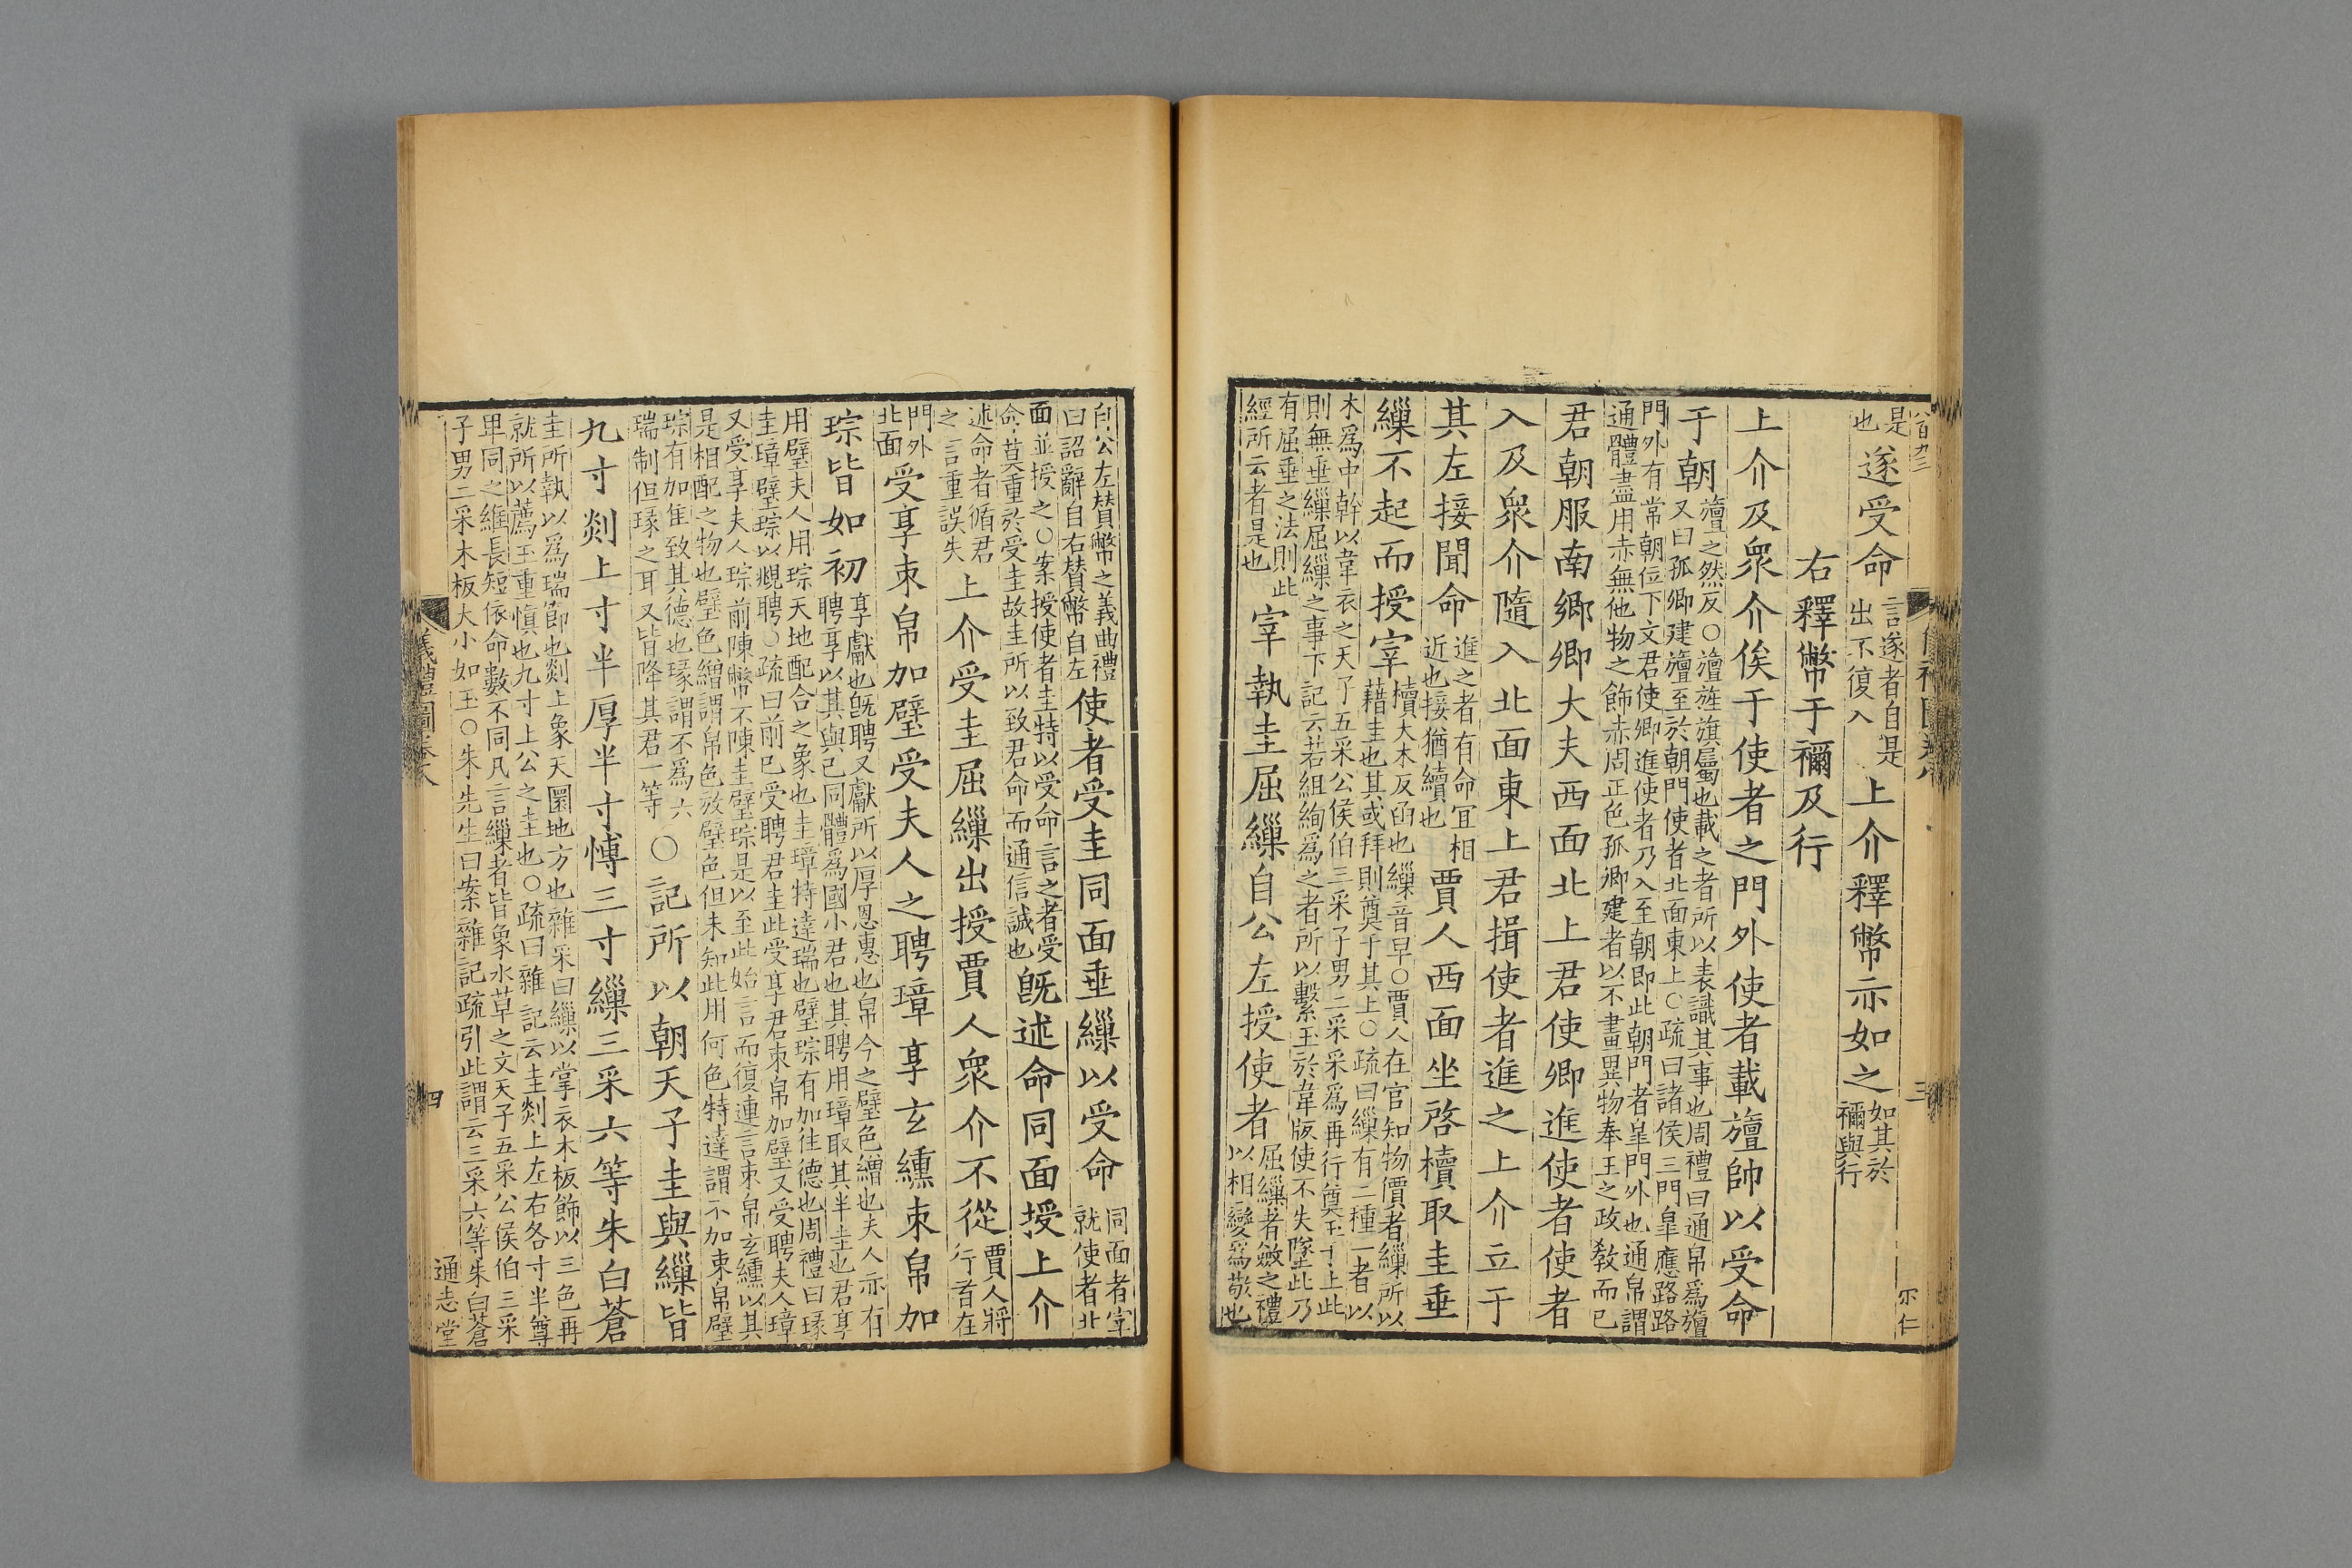 是
也
遂受命
言遂者自是
出不復入
上介釋幣亦如之
如其於
禰與行
右釋幣于禰及行
上介及衆介俟于使者之門外使者載旜帥以受命
于朝
旜之然反○旜旌旗屬也載之者所以表識其事也周禮曰通帛爲旜
又曰孤卿建旜至於朝門使者北面東上○疏曰諸侯三門皐應路路
門外有常朝位下文君使卿進使者乃入至朝即此朝門者皐門外也通帛謂
通體盡用赤無他物之飾赤周正色孤卿建者以不畫異物奉王之政敎而已
君朝服南鄉卿大夫西面北上君使卿進使者使者
入及衆介隨入北面東上君揖使者進之上介立于
其左接聞命
進之者有命宜相
近也接猶續也
賈人西面坐啓櫝取圭垂
繅不起而授宰
櫝大木反函也繅音早○賈人在官知物價者繅所以
藉圭也其或拜則奠于其上○疏曰繅有二種一者以
木爲中幹以韋衣之天子五采公侯伯三采子男二采采爲再行奠玉于上此
則無垂繅屈繅之事下記云若組絢爲之者所以繫玉於韋版使不失墜此乃
有屈垂之法則此
經所云者是也
宰執圭屈繅自公左授使者
屈繅者斂之禮
以相變爲敬也
自公左贊幣之義曲禮
曰詔辭自右贊幣自左
使者受圭同面垂繅以受命
同面者宰
就使者北
面並授之○案授使者圭特以受命言之者受
命莫重於受圭故圭所以致君命而通信誠也
旣述命同面授上介
述命者循君
之言重誤失
上介受圭屈繅出授賈人衆介不從
賈人將
行者在
門外
北面
受享束帛加璧受夫人之聘璋享玄纁束帛加
琮皆如初
享獻也旣聘又獻所以厚恩惠也帛今之璧色繒也夫人亦有
聘享以其與己同體爲國小君也其聘用璋取其半圭也君享
用璧夫人用琮天地配合之象也圭璋特達瑞也璧琮有加往德也周禮曰瑑
圭璋璧琮以覜聘○疏曰前已受聘君圭此受享君束帛加璧又受聘夫人璋
又受享夫人琮前陳幣不陳圭璧琮是以至此始言而復連言束帛玄纁以其
是相配之物也璧色繒謂帛色放璧色但未知此用何色特達謂不加束帛璧
琮有加隹致其德也瑑謂不爲六
瑞制但瑑之耳又皆降其君一等
○記所以朝天子圭與繅皆
九寸剡上寸半厚半寸博三寸繅三采六等朱白蒼
圭所執以爲瑞節也剡上象天圜地方也雜采曰繅以掌衣木板飾以三色再
就所以薦玉重愼也九寸上公之圭也○疏曰雜記云圭剡上左右各寸半尊
卑同之維長短依命數不同凡言繅者皆象水草之文天子五采公侯伯三采
子男二采木板大小如玉○朱先生曰案雜記疏引此謂云三采六等朱白蒼
四
通志堂